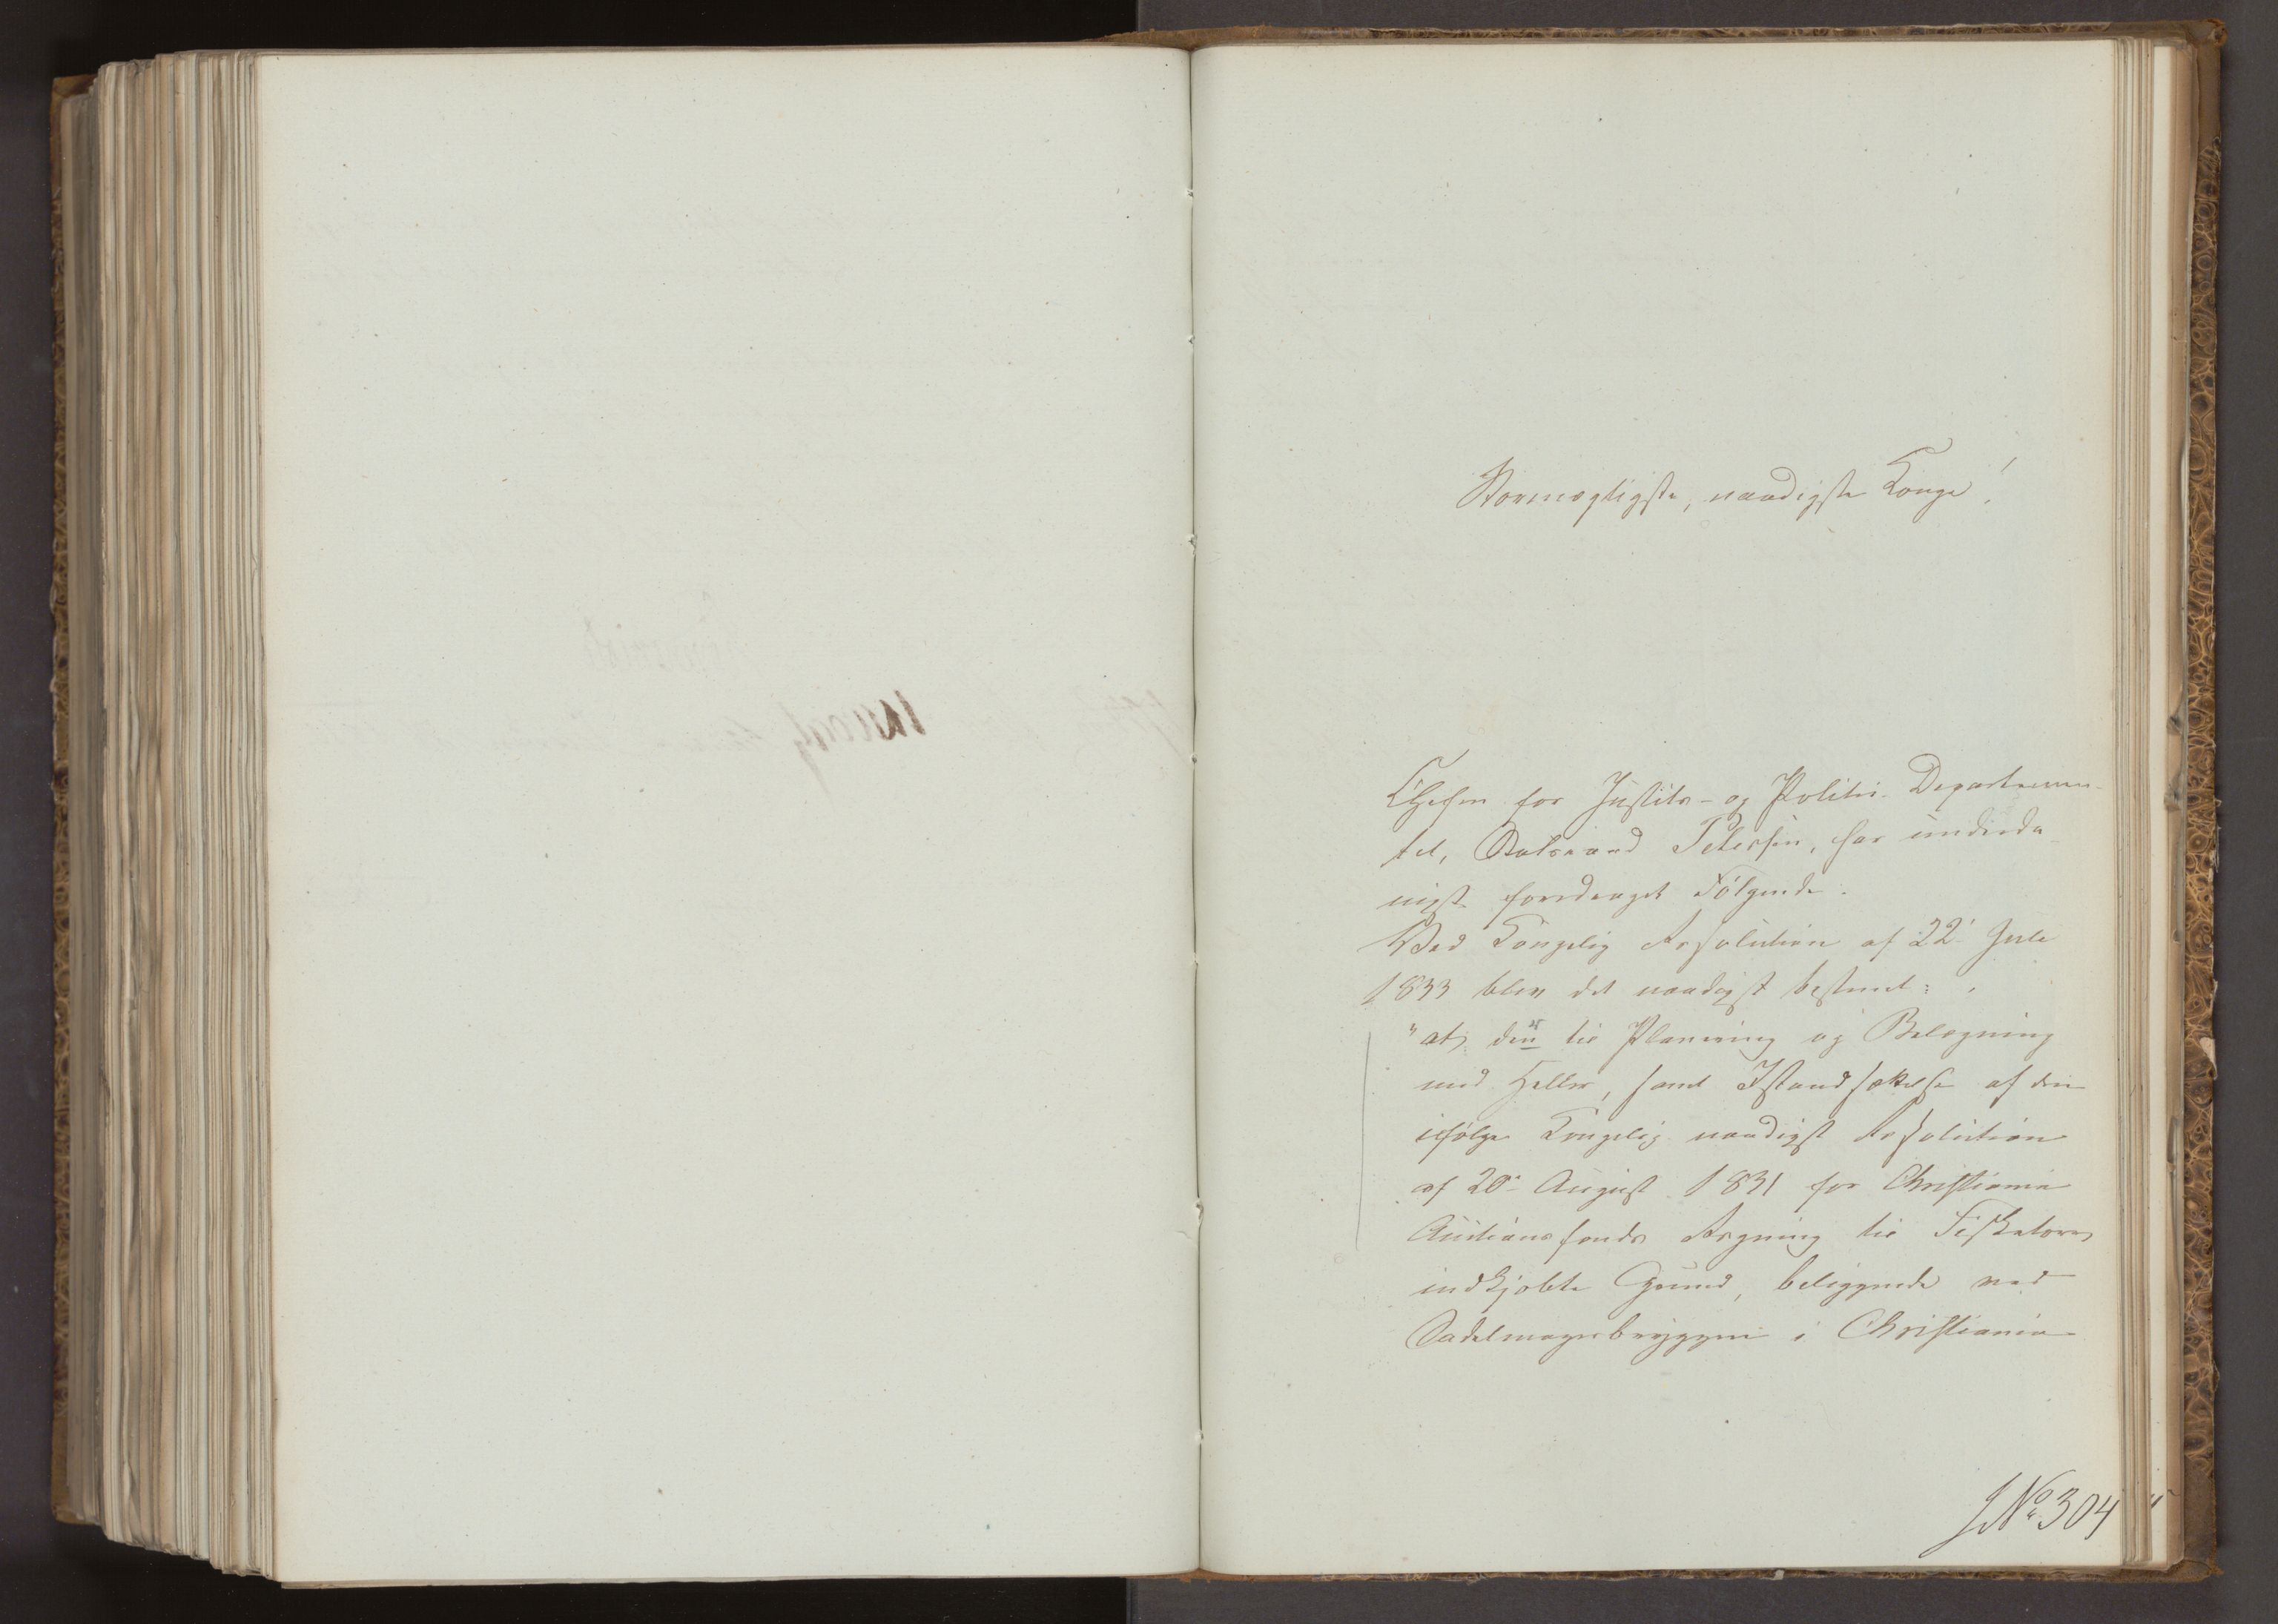 Stormægtigste, naadigste Konge!
Chefen for Justits- og Politie-Departemen-
tet, Statsraad Petersen, har underda-
nigst foredraget Følgende.
Ved Kongelig Resolution af 22de Juli
1833 blev det naadigst bestemt:
"at, den til Planering og Belægning
med Heller, samt Istandsættelse af den
ifølge Kongelig naadigst Resolution
af 20de August 1831 for Christiania
Auctionsfonds Regning til Fisketorv
indkjøbte Grund, beliggende ved
Sadelmagerbryggen i Christiania
JNo 304